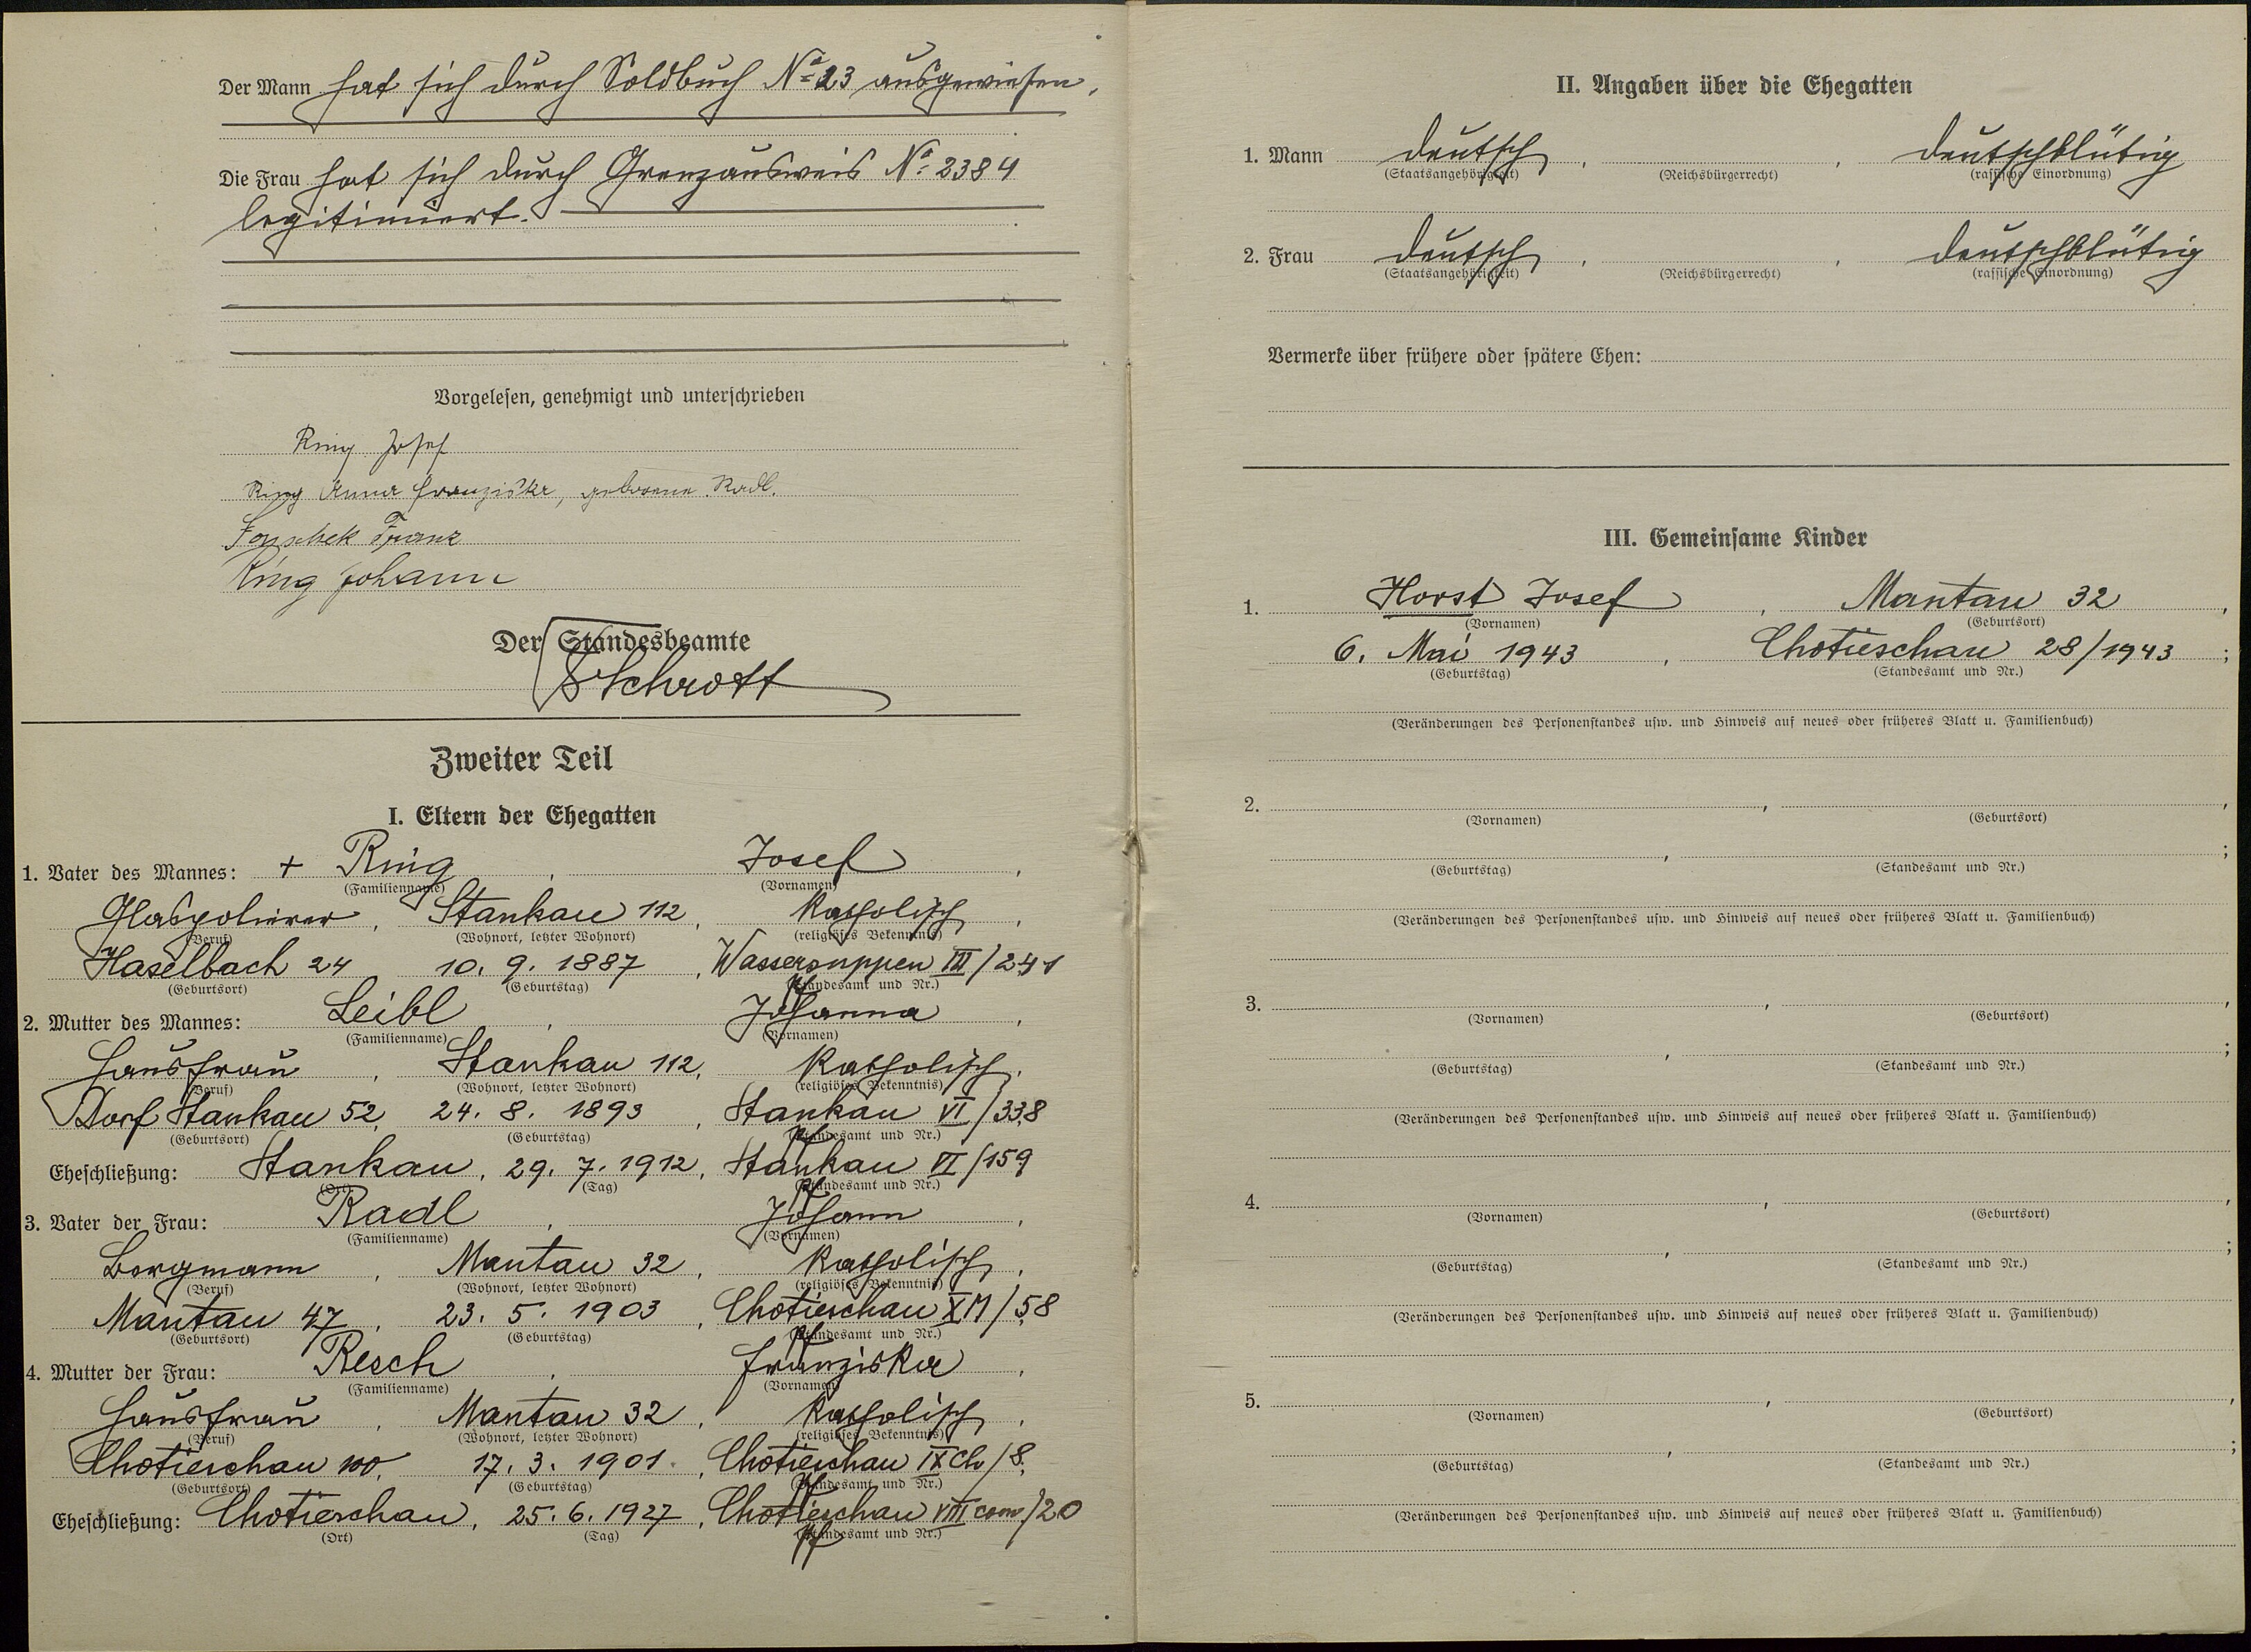 Der Mann hat sich durch Soldbuch No 23 ausgewiesen.
Die Frau hat sich durch Grenzausweis No 2384
legitimiert.
Vorgelesen, genehmigt und unterschrieben
Ring Josef
Ring Anna Franziska, geborene Radl.
Franz
Ring Johann
Der Standesbeamte
Schrott
Zweiter Teil
I. Eltern der Ehegatten
1. Vater des Mannes: + Ring, Josef,
(Familienname) (Vornamen)
Glaspolierer, Stankau 112, katholisch,
(Beruf) (Wohnort, letzter Wohnort) (religiöses Bekenntnis)
Haselbach 24 10. 9. 1887, Wassersuppen III/241
(Geburtsort) (Geburtstag) (Standesamt und Nr.)
2. Mutter des Mannes: Leibl, Johanna,
(Familienname) (Vornamen)
Hausfrau, Stankau 112, katholisch,
(Beruf) (Wohnort, letzter Wohnort) (religiöses Bekenntnis)
Dorf Stankau 52, 24. 8. 1893, Stankau VI/338
(Geburtsort) (Geburtstag) (Standesamt und Nr.)
Eheschließung: Stankau, 29. 7. 1912, Stankau VI/159
(Ort) (Tag) (Standesamt und Nr.)
3. Vater der Frau: Radl, Johann,
(Familienname) (Vornamen)
Bergmann, Mantau 32, katholisch,
(Beruf) (Wohnort, letzter Wohnort) (religiöses Bekenntnis)
Mantau 47, 23. 5. 1903, Chotieschau X M/58
(Geburtsort) (Geburtstag) (Standesamt und Nr.)
4. Mutter der Frau: Resch, Franziska,
(Familienname) (Vornamen)
Hausfrau, Mantau 32, katholisch,
(Beruf) (Wohnort, letzter Wohnort) (religiöses Bekenntnis)
Chotieschau 100, 17. 3. 1901, Chotieschau IX Ch/8,
(Geburtsort) (Geburtstag) (Standesamt und Nr.)
Eheschließung: Chotieschau, 25. 6. 1927, Chotieschau VIII com/20
(Ort) (Tag) (Standesamt und Nr.)
II. Angaben über die Ehegatten
1. Mann deutsch, , deutschblütig
(Staatsangehörigkeit) (Reichsbürgerrecht) (rassische Einordnung)
2. Frau deutsch, , deutschblütig
(Staatsangehörigkeit) (Reichsbürgerrecht) (rassische Einordnung)
Vermerke über frühere oder spätere Ehen:
III. Gemeinsame Kinder
1. Horst Josef, Mantau 32,
(Vornamen) (Geburtsort)
6. Mai 1943, Chotieschau 28/1943;
(Geburtstag) (Standesamt und Nr.)
(Veränderungen des Personenstandes usw. und Hinweis auf neues oder früheres Blatt u. Familienbuch)
2. , ,
(Vornamen) (Geburtsort)
, ;
(Geburtstag) (Standesamt und Nr.)
(Veränderungen des Personenstandes usw. und Hinweis auf neues oder früheres Blatt u. Familienbuch)
3. , ,
(Vornamen) (Geburtsort)
, ;
(Geburtstag) (Standesamt und Nr.)
(Veränderungen des Personenstandes usw. und Hinweis auf neues oder früheres Blatt u. Familienbuch)
4. , ,
(Vornamen) (Geburtsort)
, ;
(Geburtstag) (Standesamt und Nr.)
(Veränderungen des Personenstandes usw. und Hinweis auf neues oder früheres Blatt u. Familienbuch)
5. , ,
(Vornamen) (Geburtsort)
, ;
(Geburtstag) (Standesamt und Nr.)
(Veränderungen des Personenstandes usw. und Hinweis auf neues oder früheres Blatt u. Familienbuch)